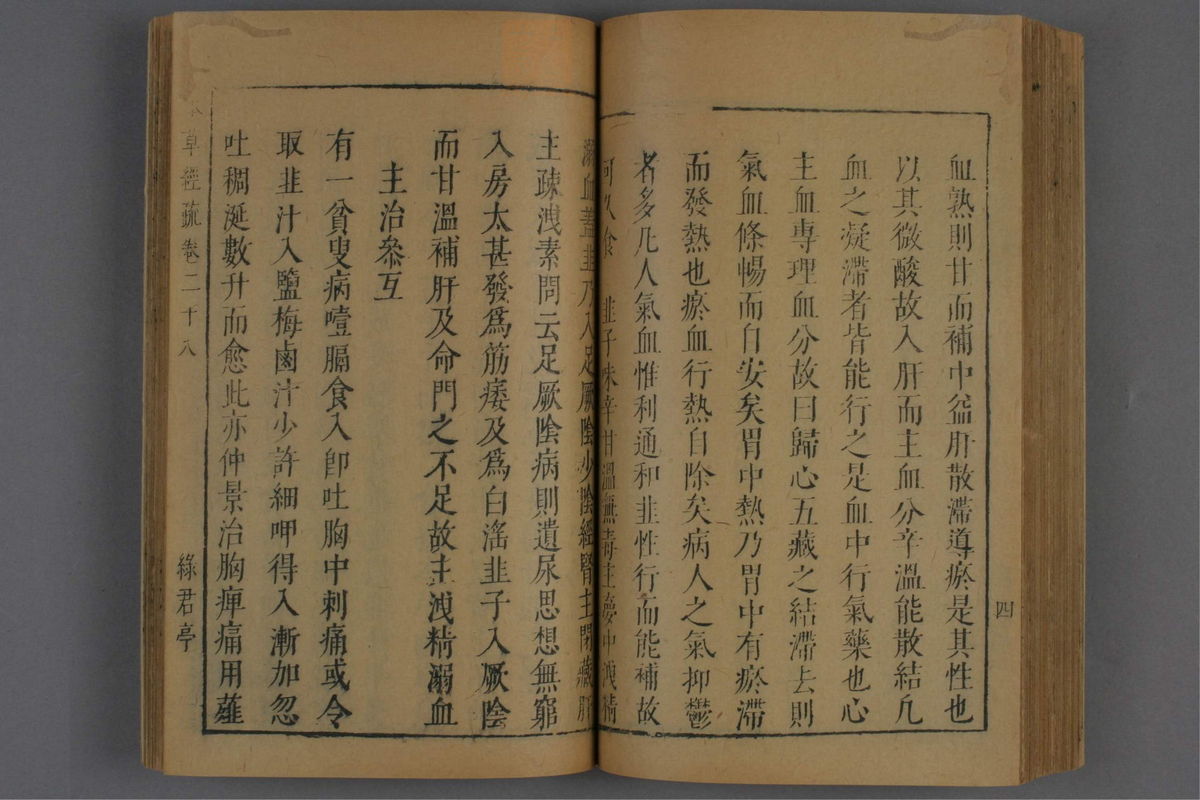 血熟則甘而補中益肝散滯導瘀是其性也
以其微酸故入肝而主血分辛溫能散結凡
血之凝滯者皆能行之是血中行氣藥也心
主血專理血分故曰歸心五藏之結滯去則
氣血條暢而自安矣胃中熱乃胃中有瘀滯
而發熱也瘀血行熱自除矣病人之氣抑鬱
者多凡人氣血惟利通和韭性行而能補故
可久食 韭子味辛甘溫無毒主夢中洩精
溺血蓋韭乃入足厥陰少陰經腎主閉藏肝
主疎洩素問云足厥陰病則遺尿思想無窮
入房太甚發爲筋痿及爲白滛韭子入厥陰
而甘溫補肝及命門之不足故主洩精溺血
主治參互
有一貧叟病噎膈食入卽吐胸中刺痛或令
取韭汁入鹽梅鹵汁少許細呷得入漸加忽
吐稠涎數升而愈此亦仲景治胸痺痛用薤
草經疏 卷二十八
綠君亭
四